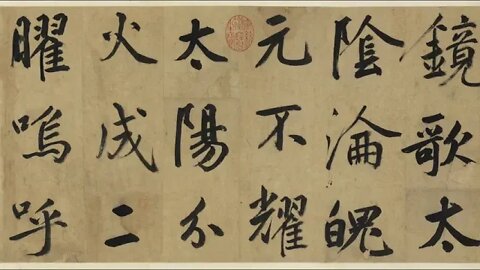 鏡歌太
陰淪魄
元不耀
太陽分
火成二
曜嗚呼